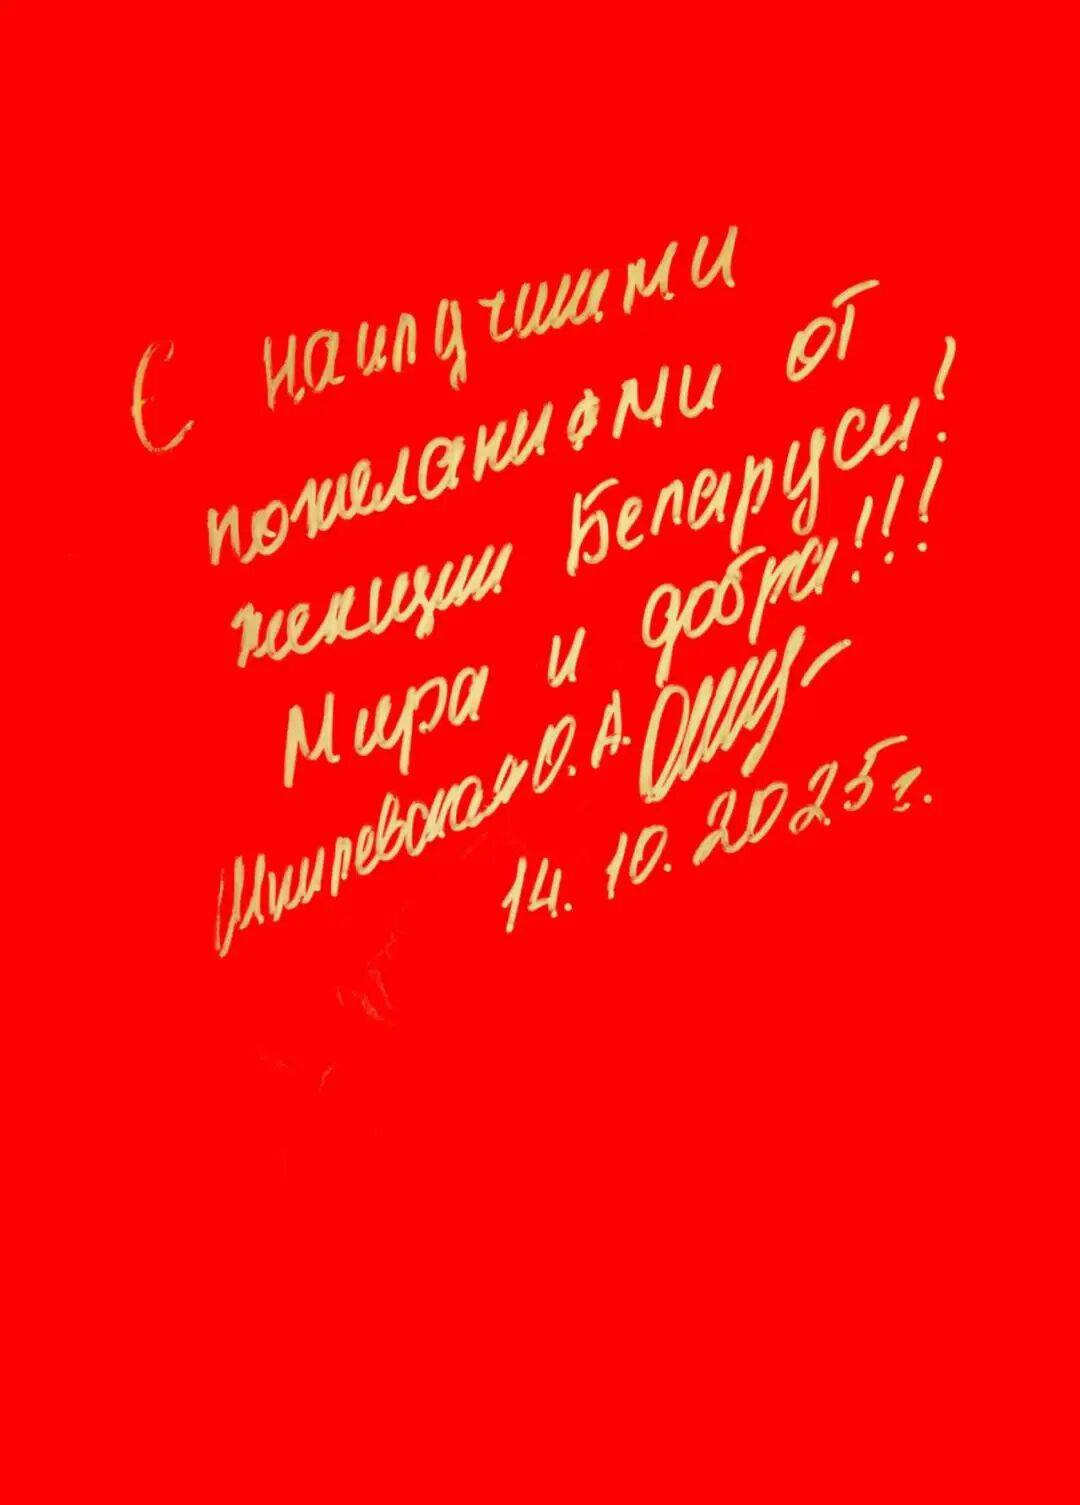 С наилучшими
пожеланиями от
женщин Беларуси!
Мира и добра!!!
Шпилевская О.А.
14.10.2025г.